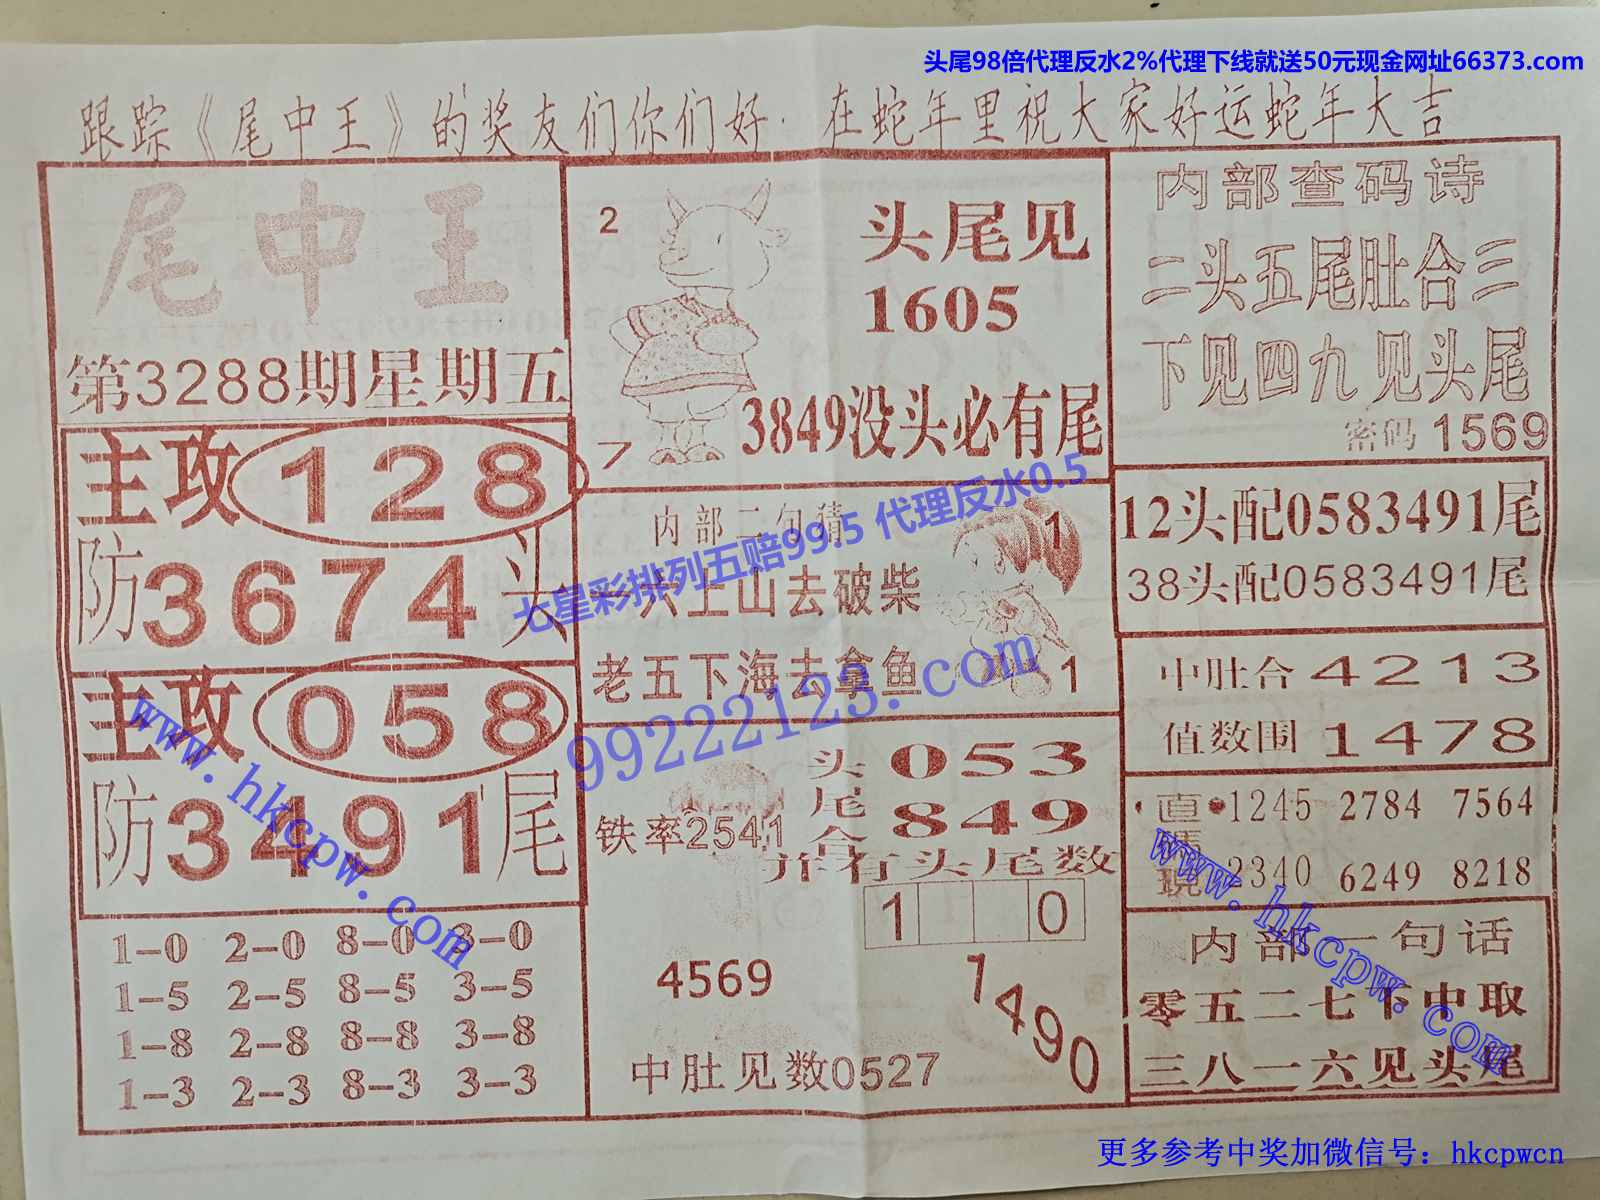 头尾98倍代理反水2%代理下线就送50元现金网址66373.com
跟踪《尾中王》的奖友们你们好·在蛇年里祝大家好运蛇年大吉
尾中王
第3288期星期五
主攻128
防3674头
主攻058
防3491尾
1-0 2-0 8-0 3-0
1-5 2-5 8-5 3-5
1-8 2-8 8-8 3-8
1-3 2-3 8-3 3-3
2
7
头尾见
1605
3849没头必有尾
内部二句猜
一六上山去破柴
老五下海去拿鱼
1
1
头 053
尾 849
合
并有头尾数
铁率2541
1 0
4569
1490
中肚见数0527
内部查码诗
二头五尾肚合三
下见四九见头尾
密码1569
12头配0583491尾
38头配0583491尾
中肚合4213
值数围1478
直 1245 2784 7564
2340 6249 8218
内部一句话
零五二七下中取
三八一六见头尾
七星彩排列五赔99.5 代理反水0.5
99222123.com
www.hkcpw.com
www.hkcpw.com
更多参考中奖加微信号：hkcpwcn